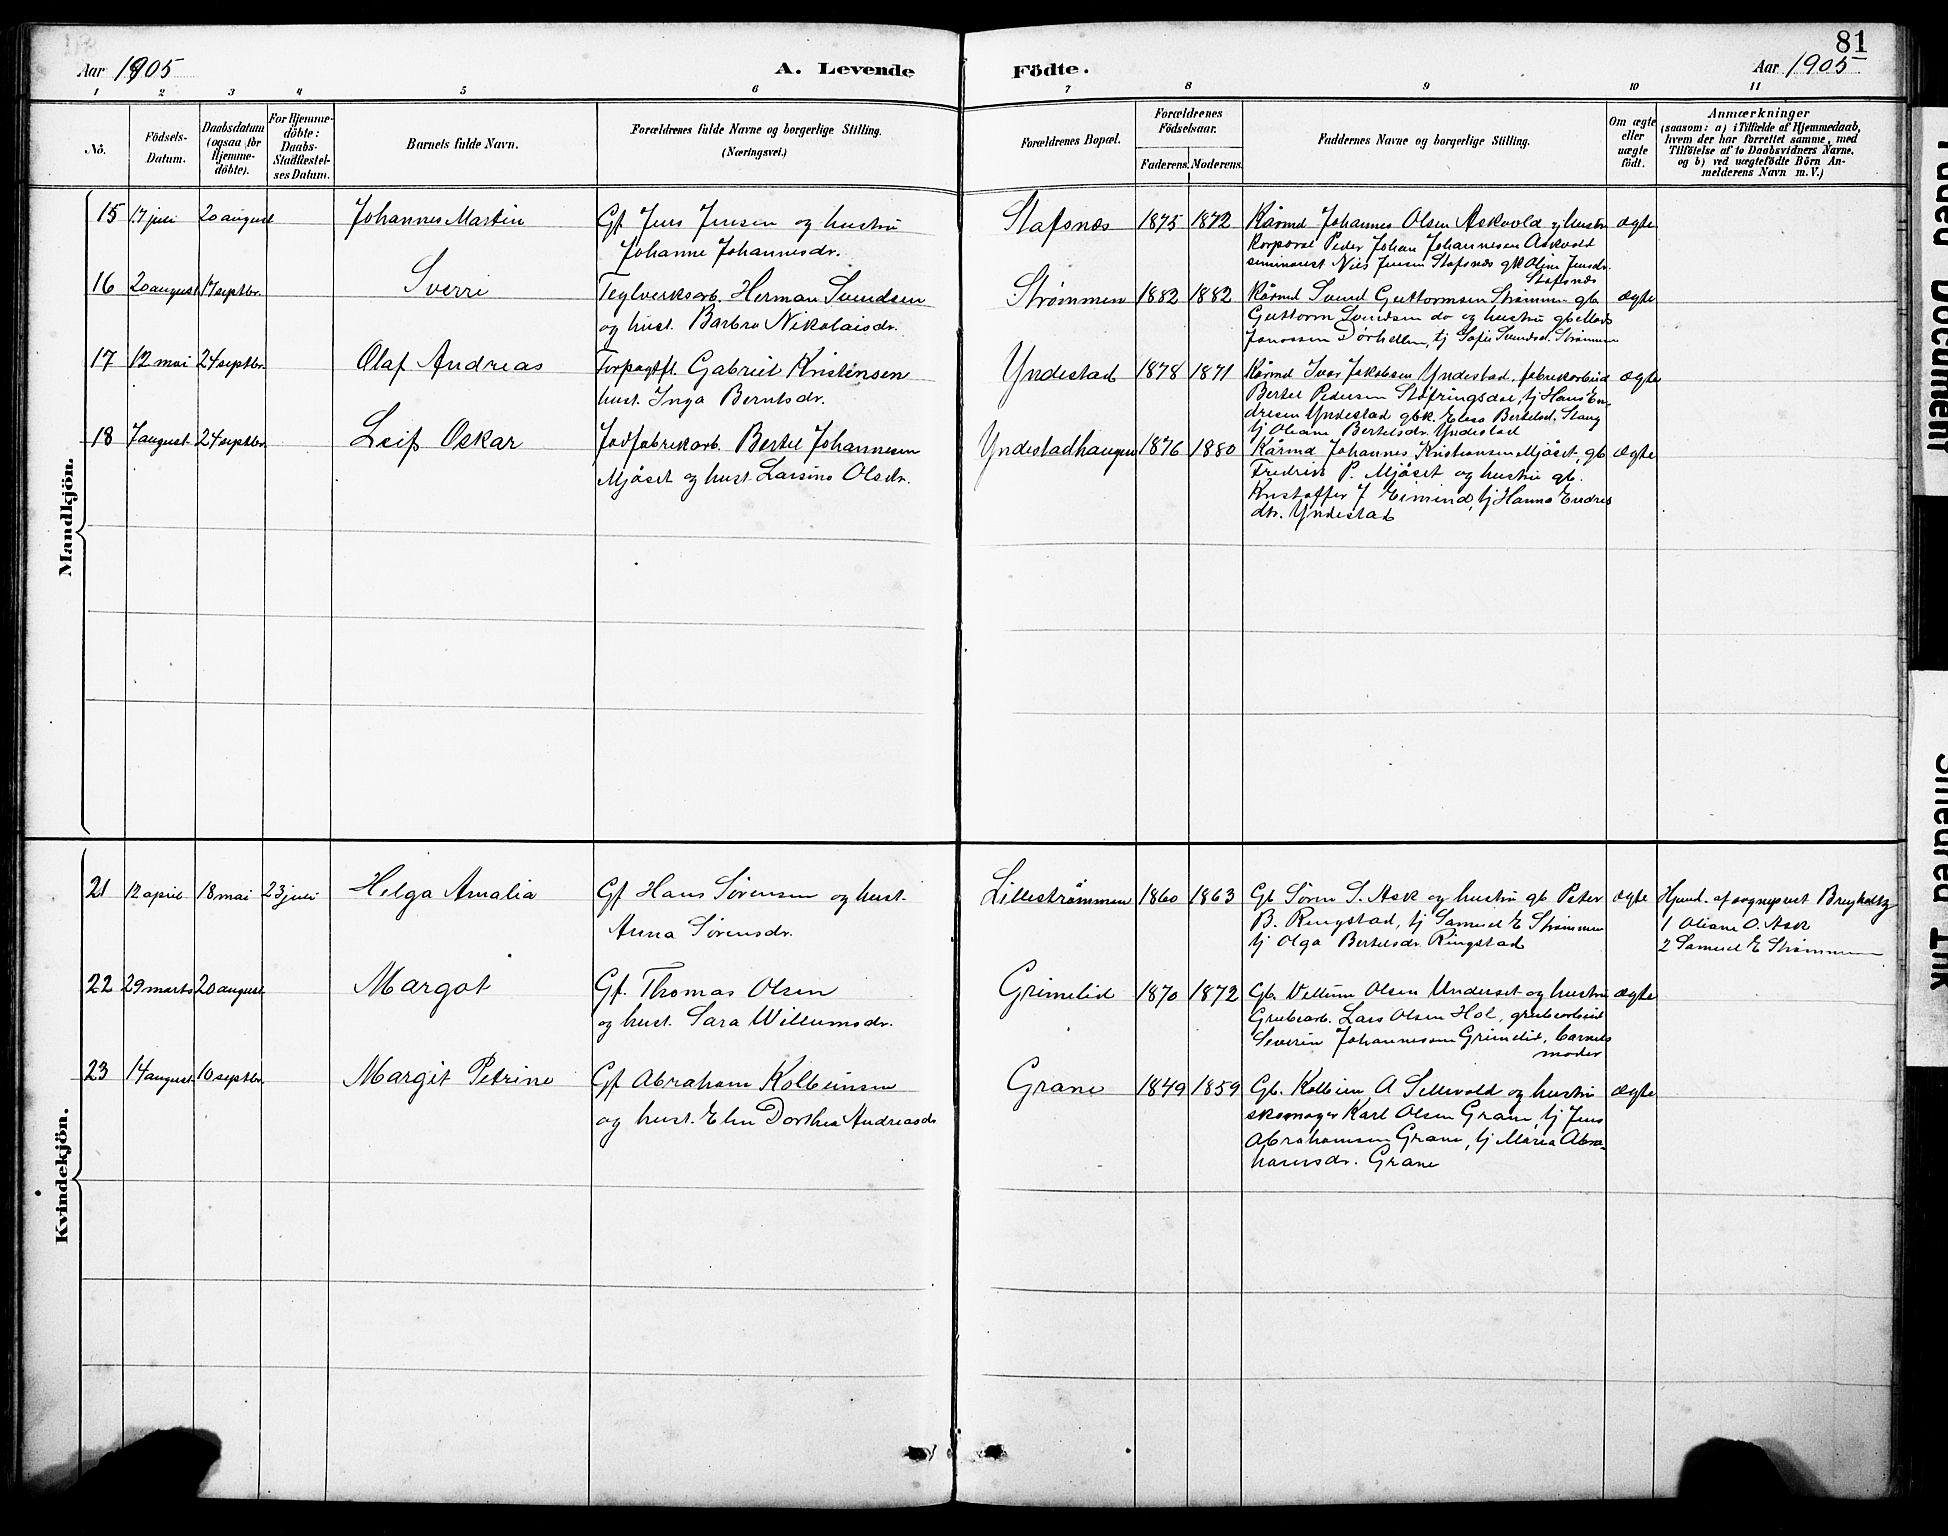 Aar 1905
A. Levende
Födte.
81
Aar 1905
1 2 3 4 5 6 7 8 9 10 11
Nò.
Födsels-
Datum.
Daabsdatum
(ogsaa for
Hjemme-
döbte).
For Hjemme-
döbte:
Daabs-
Stadfæstel-
ses Datum.
Barnets fulde Navn.
Forældrenes fulde Navne og borgerlige Stilling.
(Næringsvei.)
Forældrenes Bopæl.
Forældrenes
Födselsaar.
Faderens. Moderens.
Faddernes Navne og borgerlige Stilling.
Om ægte
eller
uægte
födt.
Anmærkninger
(saasom: a) i Tilfælde af Hjemmedaab,
hvem der har forrettet samme, med
Tilföielse af to Daabsvidners Navne,
og b) ved uægtefödte Börn An-
melderens Navn m. V.)
Mandkjön.
15 17 juli 20 august Johannes Martin
Gf Jens Jensen og hustru
Johanne Johannesdr.
Stafsnæs 1875 1872
Kårmd Johannes Olsen Askvold og hustru
korporal Peder Johan Johannesen Askvold
seminarist Nils Jensen Stafsnæs gk Oline Jensdr.
Stafsnæs
ægte
16 20 august 17 septbr. Sverri
Teglverksarb. Herman Svendsen
og hust. Barbro Nikolaisdr.
Strømmen 1882 1882
Kårmd Svend Guttormsen Strømmen gb
Guttorm Svendsen do og hustru gb Mads
Janossen Dørhellen, tj Sofie Svendsd. Strømmen
ægte
17 12 mai 24 septbr. Olaf Andreas
Torpagtft. Gabriel Kristensen
hust. Inga Berntsdr.
Yndestad 1878 1871
Kårmd Ivar Jakobsen Yndestad, fabrikarbeid
Bertel Pedersen Støfringsdal, tj Hans En-
dresen Yndestad gbk. Elias Bertelsd. Stang
tj Oliane Bertelsdr. Yndestad
ægte
18 7 august 24 septbr. Leif Oskar
Jodfabrikarb. Bertel Johannesen
Mjåset og hust. Larsine Olsdr.
Yndestadhaugen 1876 1880
Kårmd Johannes Kristiansen Mjåset, gb
Fredrik P. Mjåset og hustru gb.
Kristoffer J Eimind, tj Hanna Endres
dtr. Yndestad
ægte
Kvindekjön.
21 12 april 18 mai 23 juli Helga Amalia
Gf Hans Sørensen og hust.
Anna Sørensdr.
Lillestrømmen 1860 1863
Gb Søren S. Ask og hustru gb Peter
B. Ringstad, tj Samuel E Strømmen
tj Olga Bertelsdr. Ringstad
ægte
Hjemd. af sognepræst Breyholtz
1 Oliane O. Ask
2 Samuel E Strømmen
22 29 marts 20 august Margot
Gf. Thomas Olsen
og hust. Sara Willumsdr.
Grimelid 1870 1872
Gb. Villum Olsen Underset og hustru
Grubearb. Lars Olsen Hol, grubearbeid
Severin Johannesen Grimelid, barnets
moder
ægte
23 14 august 10 septbr. Margit Petrine
Gf Abraham Kolbeinsen
og hust. Elen Dorthea Andreasdr
Grane 1849 1859
Gb. Kolbein A Sellevold og hustru
skomager Karl Olsen Grane, tj Jens
Abrahamsen Grane, tj Maria Abra-
hamsdr. Grane
ægte
Faded Document
Smeared Ink